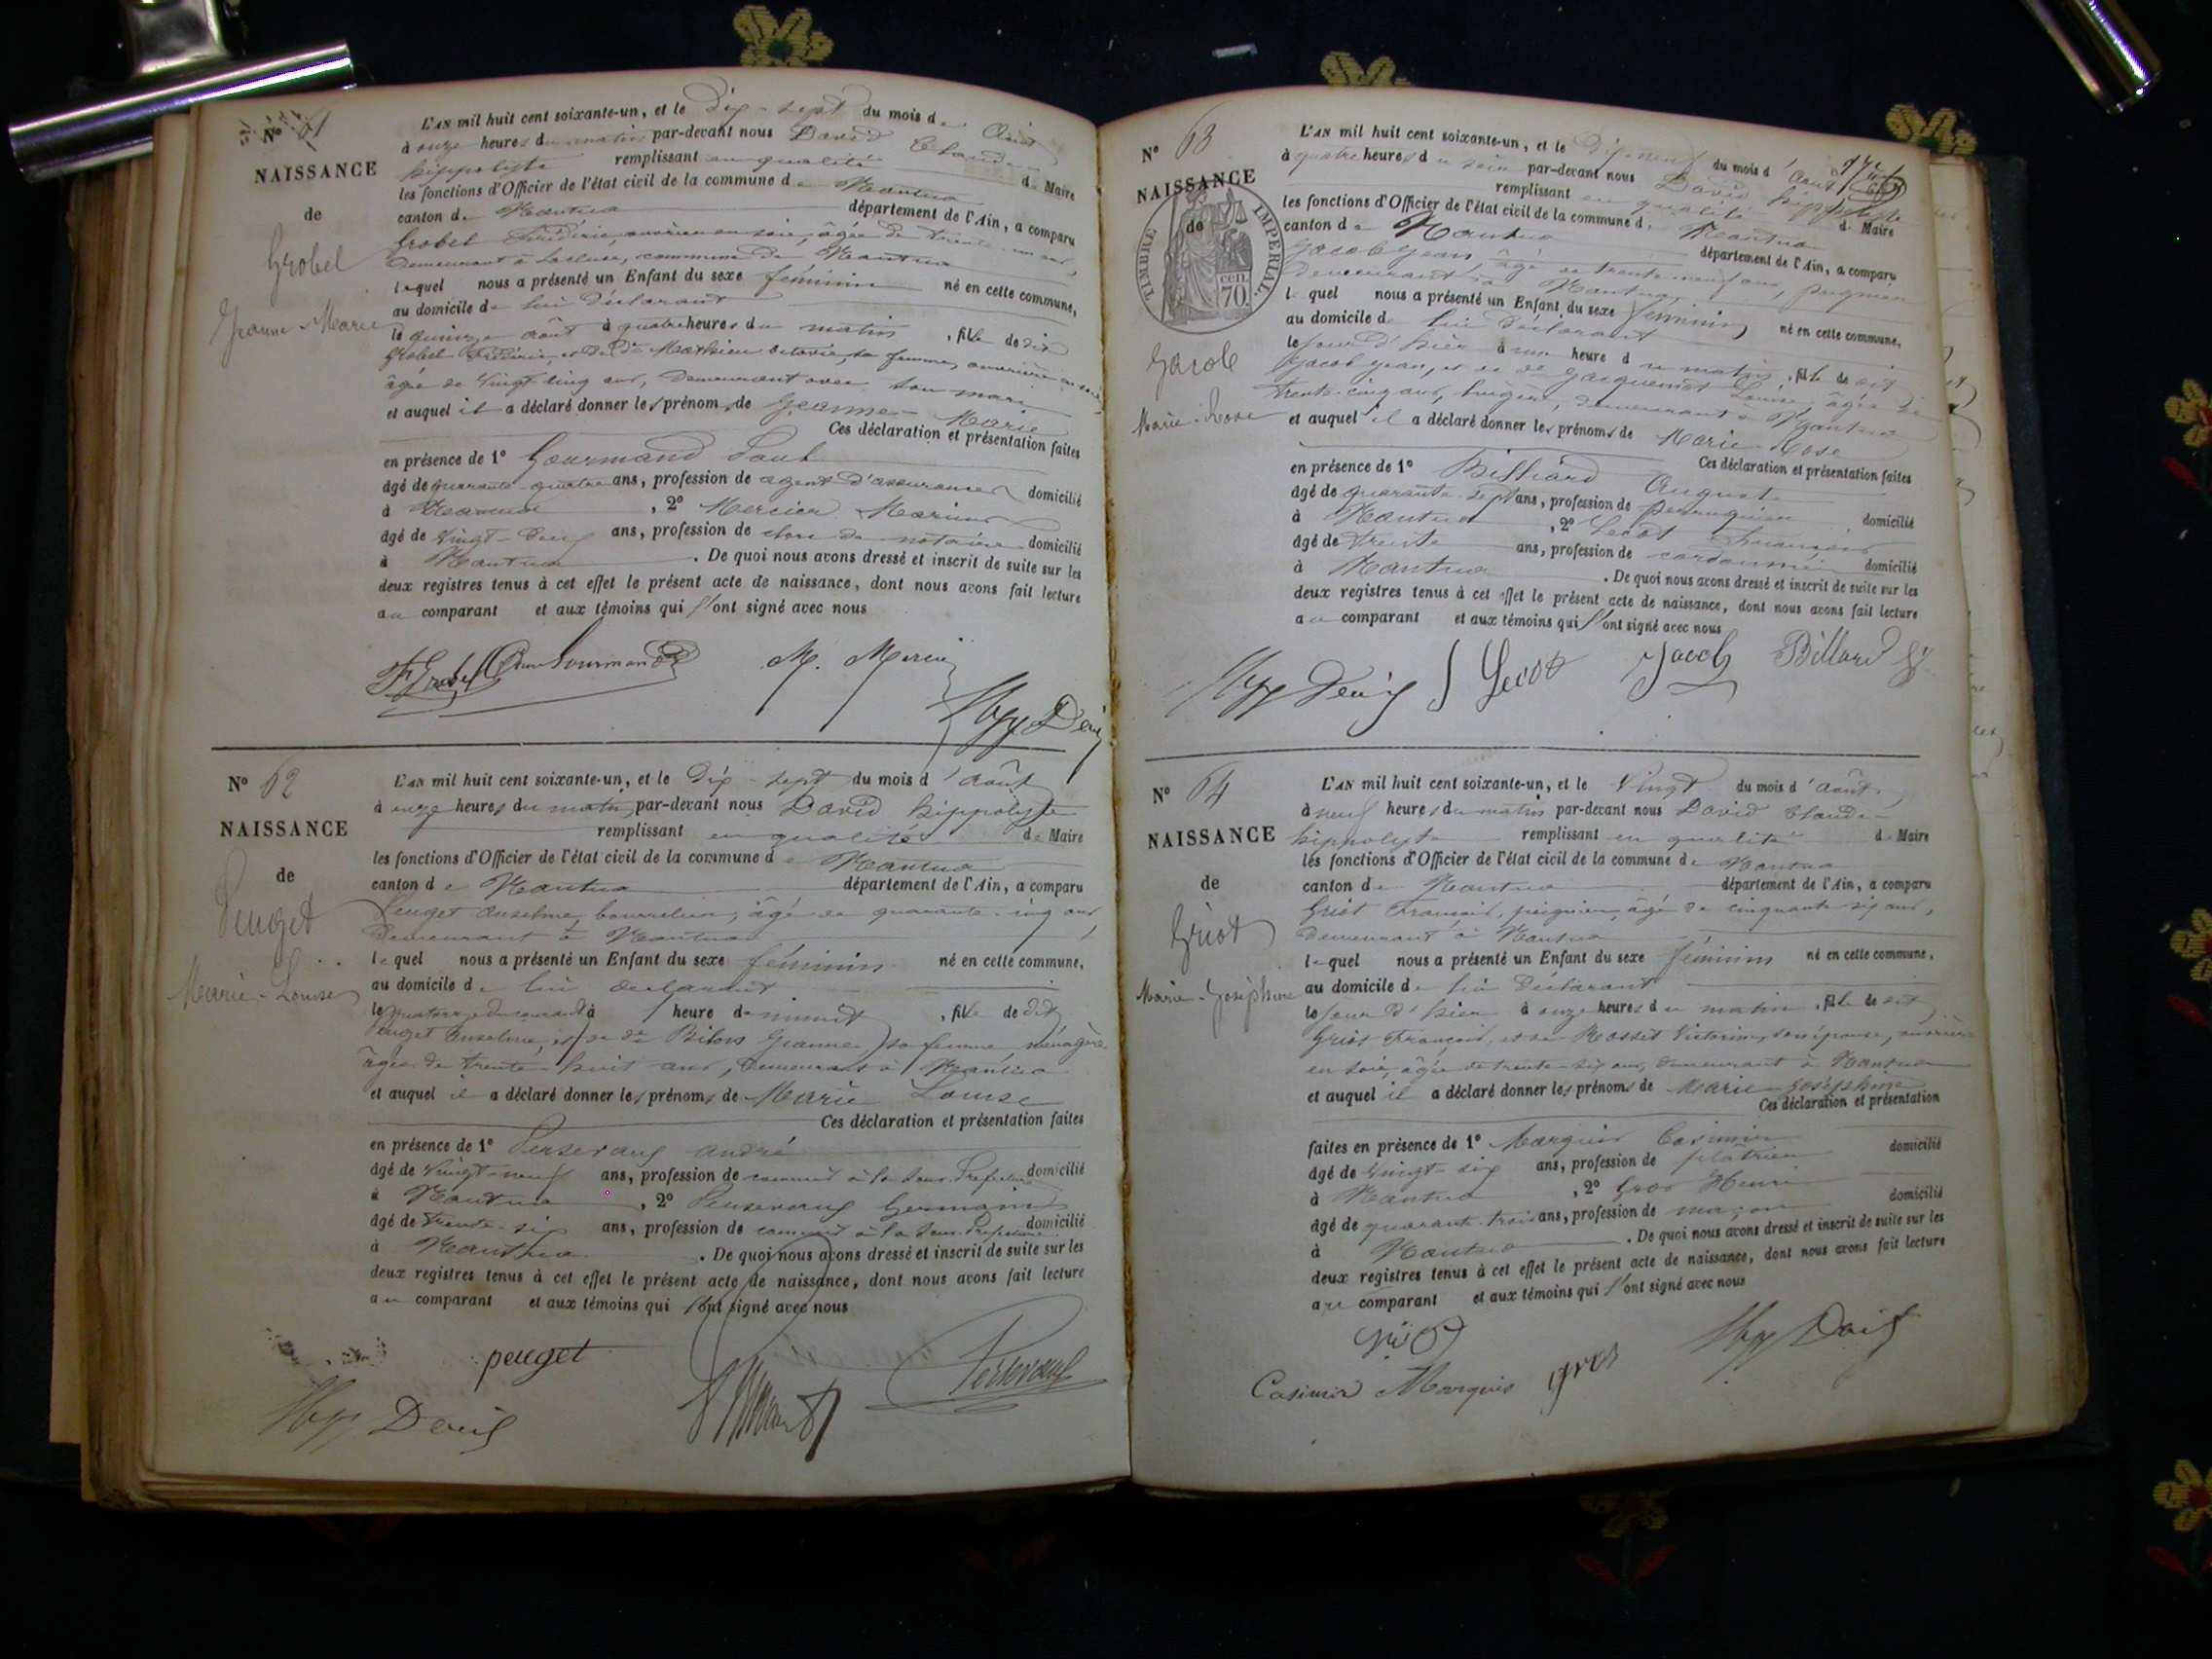 N° 61
NAISSANCE
de
Grobel
Jeanne-Marie
L'AN mil huit cent soixante-un, et le dix-sept du mois d'Août
à onze heures du matin par-devant nous David Claude
hippolyte remplissant en qualité de Maire
les fonctions d'Officier de l'état civil de la commune de Nantua
canton de Nantua département de l'Ain, a comparu
Grobel Frédéric, ouvrier en soie, âgé de trente un ans,
demeurant à Lacluse, commune de Nantua
lequel nous a présenté un Enfant du sexe féminin né en cette commune,
au domicile de lui déclarant
le quinze août à quatre heures du matin, fille de dit
Grobel Frédéric, et de Mathieu Octavie, sa femme, ouvrière en soie,
âgée de vingt cinq ans, demeurant avec son mari
et auquel il a déclaré donner les prénoms de Jeanne-Marie
Ces déclaration et présentation faites
en présence de 1° Gourmand Paul
âgé de quarante-quatre ans, profession de agent d'assurances domicilié
à Nantua, 2° Mercier Marius
âgé de vingt-deux ans, profession de clerc de notaire domicilié
à Nantua. De quoi nous avons dressé et inscrit de suite sur les
deux registres tenus à cet effet le présent acte de naissance, dont nous avons fait lecture
au comparant et aux témoins qui l'ont signé avec nous
F Grobel Gourmand M. Mercier
N° 62
NAISSANCE
de
Peuget
Marie-Louise
L'AN mil huit cent soixante-un, et le dix-sept du mois d'août
à onze heures du matin, par-devant nous David hippolyte
remplissant en qualité de Maire
les fonctions d'Officier de l'état civil de la commune de Nantua
canton de Nantua département de l'Ain, a comparu
Peuget Anselme, bourrelier, âgé de quarante-cinq ans,
demeurant à Nantua
lequel nous a présenté un Enfant du sexe féminin né en cette commune,
au domicile de lui déclarant
le quatorze du courant à heure de minuit, fille de dit
Peuget Anselme, et de Jeanne, sa femme, ménagère
âgée de trente-huit ans, demeurant à Nantua
et auquel il a déclaré donner les prénoms de Marie Louise
Ces déclaration et présentation faites
en présence de 1° andré
âgé de vingt-neuf ans, profession de commis à la Sous-Préfecture domicilié
à Nantua, 2° Germain
âgé de trente-six ans, profession de commis à la Sous-Préfecture domicilié
à Nantua. De quoi nous avons dressé et inscrit de suite sur les
deux registres tenus à cet effet le présent acte de naissance, dont nous avons fait lecture
au comparant et aux témoins qui l'ont signé avec nous
peuget
N° 63
NAISSANCE
de
TIMBRE IMPERIAL
70 cen
Jacob
Marie-Rose
L'AN mil huit cent soixante-un, et le dix-neuf du mois d'Août
à quatre heures du soir par-devant nous David hippolyte
remplissant en qualité de Maire
les fonctions d'Officier de l'état civil de la commune de Nantua
canton de Nantua département de l'Ain, a comparu
Jacob Jean, âgé de trente-neuf ans, peignier
demeurant à Nantua,
lequel nous a présenté un Enfant du sexe féminin né en cette commune,
au domicile de lui déclarant
le jour d'hier à une heure du matin, fille de dit
Jacob Jean, et de Jacquemet Louise, âgée de
trente-cinq ans, lingère, demeurant à Nantua
et auquel il a déclaré donner les prénoms de Marie-Rose
Ces déclaration et présentation faites
en présence de 1° Billiard Auguste
âgé de quarante-sept ans, profession de perruquier domicilié
à Nantua, 2° Lecot François
âgé de trente ans, profession de cordonnier domicilié
à Nantua. De quoi nous avons dressé et inscrit de suite sur les
deux registres tenus à cet effet le présent acte de naissance, dont nous avons fait lecture
au comparant et aux témoins qui l'ont signé avec nous
Lecot Jacob Billard
N° 64
NAISSANCE
de
Griot
Marie-Joséphine
L'AN mil huit cent soixante-un, et le vingt du mois d'août
à neuf heures du matin par-devant nous David Claude-
hippolyte remplissant en qualité de Maire
les fonctions d'Officier de l'état civil de la commune de Nantua
canton de Nantua département de l'Ain, a comparu
Griot François, peignier, âgé de cinquante-six ans,
demeurant à Nantua
lequel nous a présenté un Enfant du sexe féminin né en cette commune,
au domicile de lui déclarant
le jour d'hier à onze heures du matin, fille de dit
Griot François, et de Rosset Victorine, son épouse, ouvrière
en soie, âgée de trente-six ans, demeurant à Nantua
et auquel il a déclaré donner les prénoms de Marie-Joséphine
Ces déclaration et présentation
faites en présence de 1° Marquis Casimir domicilié
âgé de vingt-six ans, profession de plâtrier
à Nantua, 2° Gros Henri domicilié
âgé de quarante-trois ans, profession de maçon
à Nantua. De quoi nous avons dressé et inscrit de suite sur les
deux registres tenus à cet effet le présent acte de naissance, dont nous avons fait lecture
au comparant et aux témoins qui l'ont signé avec nous
Griot
Casimir Marquis gros